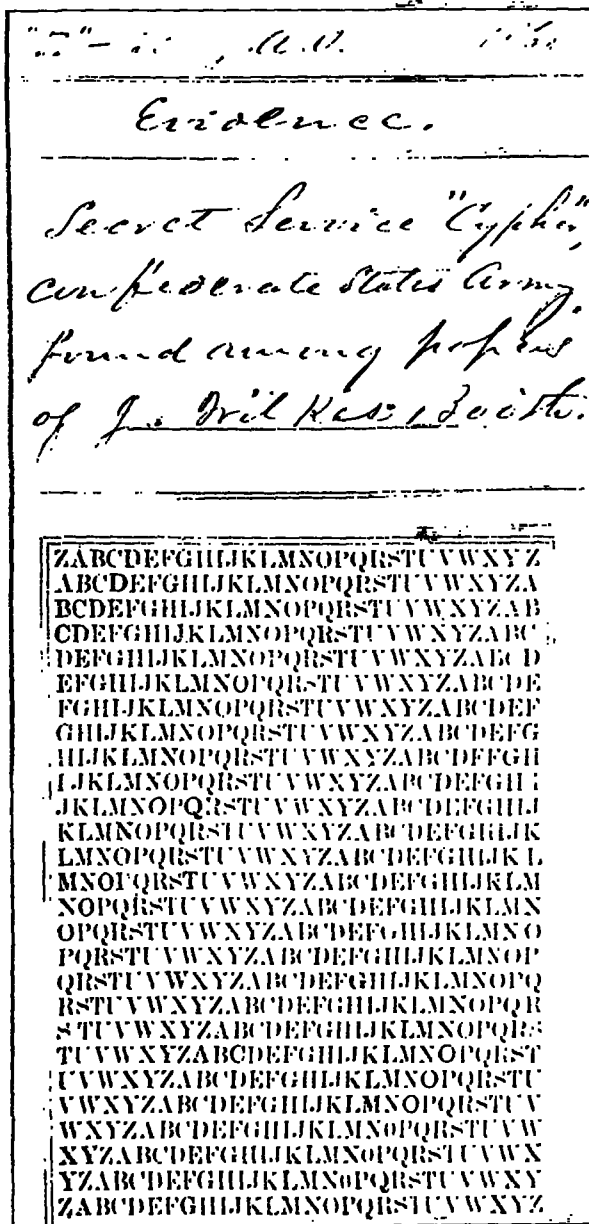 Evidence.
Secret Service "Cypher",
confederate States Army
found among papers
of J. Wilkes Booth.
ZABCDEFGHIJKLMNOPQRSTUVWXYZ
ABCDEFGHIJKLMNOPQRSTUVWXYZA
BCDEFGHIJKLMNOPQRSTUVWXYZAB
CDEFGHIJKLMNOPQRSTUVWXYZABC
DEFGHIJKLMNOPQRSTUVWXYZABCD
EFGHIJKLMNOPQRSTUVWXYZABCDE
FGHIJKLMNOPQRSTUVWXYZABCDEF
GHIJKLMNOPQRSTUVWXYZABCDEFG
HIJKLMNOPQRSTUVWXYZABCDEFGH
IJKLMNOPQRSTUVWXYZABCDEFGHI
JKLMNOPQRSTUVWXYZABCDEFGHIJ
KLMNOPQRSTUVWXYZABCDEFGHIJK
LMNOPQRSTUVWXYZABCDEFGHIJKL
MNOPQRSTUVWXYZABCDEFGHIJKLM
NOPQRSTUVWXYZABCDEFGHIJKLMN
OPQRSTUVWXYZABCDEFGHIJKLMNO
PQRSTUVWXYZABCDEFGHIJKLMNOP
QRSTUVWXYZABCDEFGHIJKLMNOPQ
RSTUVWXYZABCDEFGHIJKLMNOPQR
STUVWXYZABCDEFGHIJKLMNOPQRS
TUVWXYZABCDEFGHIJKLMNOPQRST
UVWXYZABCDEFGHIJKLMNOPQRSTU
VWXYZABCDEFGHIJKLMNOPQRSTUV
WXYZABCDEFGHIJKLMNOPQRSTUVW
XYZABCDEFGHIJKLMNOPQRSTUVWX
YZABCDEFGHIJKLMNOPQRSTUVWXY
ZABCDEFGHIJKLMNOPQRSTUVWXYZ